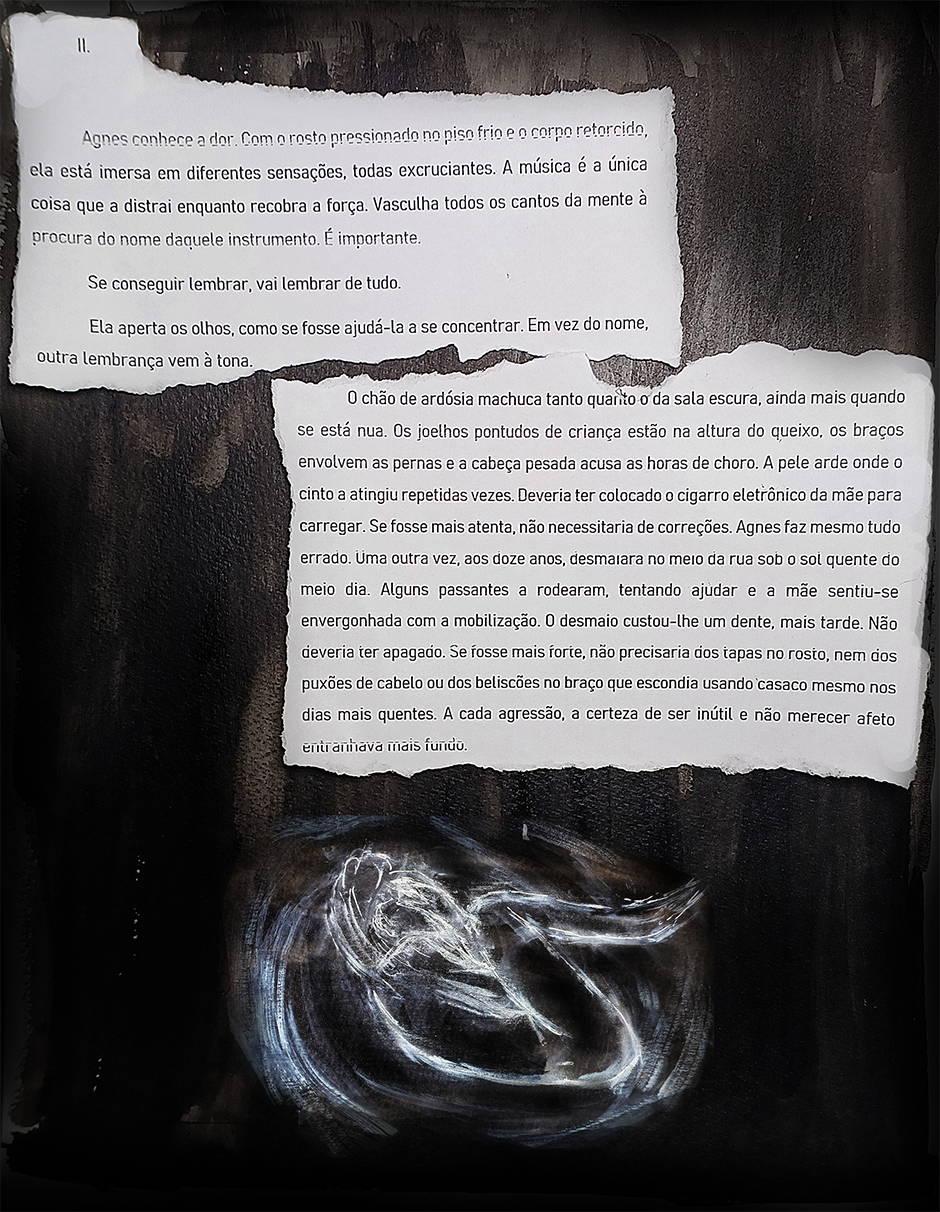 II.
Agnes conhece a dor. Com o rosto pressionado no piso frio e o corpo retorcido,
ela está imersa em diferentes sensações, todas excruciantes. A música é a única
coisa que a distrai enquanto recobra a força. Vasculha todos os cantos da mente à
procura do nome daquele instrumento. É importante.
Se conseguir lembrar, vai lembrar de tudo.
Ela aperta os olhos, como se fosse ajudá-la a se concentrar. Em vez do nome,
outra lembrança vem à tona.
O chão de ardósia machuca tanto quanto o da sala escura, ainda mais quando
se está nua. Os joelhos pontudos de criança estão na altura do queixo, os braços
envolvem as pernas e a cabeça pesada acusa as horas de choro. A pele arde onde o
cinto a atingiu repetidas vezes. Deveria ter colocado o cigarro eletrônico da mãe para
carregar. Se fosse mais atenta, não necessitaria de correções. Agnes faz mesmo tudo
errado. Uma outra vez, aos doze anos, desmaiara no meio da rua sob o sol quente do
meio dia. Alguns passantes a rodearam, tentando ajudar e a mãe sentiu-se
envergonhada com a mobilização. O desmaio custou-lhe um dente, mais tarde. Não
deveria ter apagado. Se fosse mais forte, não precisaria dos tapas no rosto, nem dos
puxões de cabelo ou dos beliscões no braço que escondia usando casaco mesmo nos
dias mais quentes. A cada agressão, a certeza de ser inútil e não merecer afeto
entranhava mais fundo.